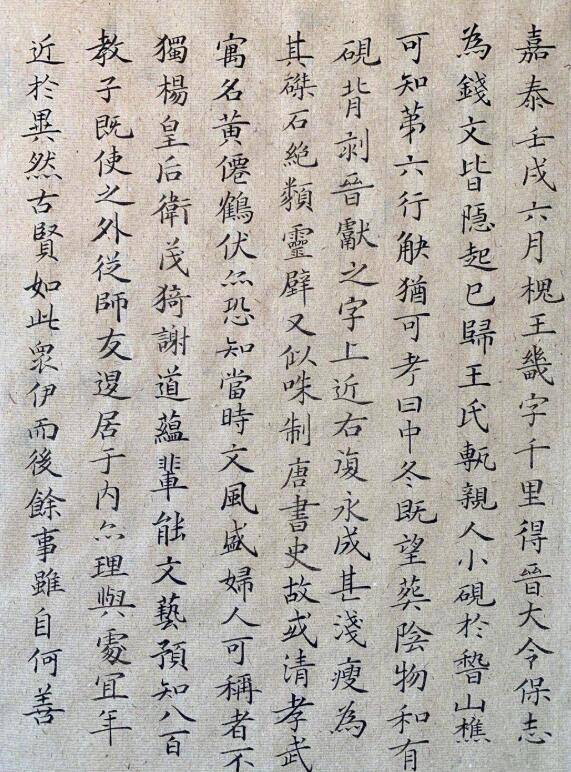 嘉泰壬戌六月槐王畿字千里得晉大令保志
為錢文皆隱起已歸王氏執親人小硯於稽山樵
可知第六行缺猶可考曰中冬既望葬陰物和有
硯背剥晉獻之字上近右復永成甚淺瘦為
其磔石絕類靈壁又似咮制唐書史故或清孝武
寓名黃僊鶴伏亦恐知當時文風盛婦人可稱者不
獨楊皇后衛茂猗謝道蘊輩能文藝預知八百
教子既使之外從師友退居于內亦理與處宜年
近於異然古賢如此眾伊而後餘事雖自何善